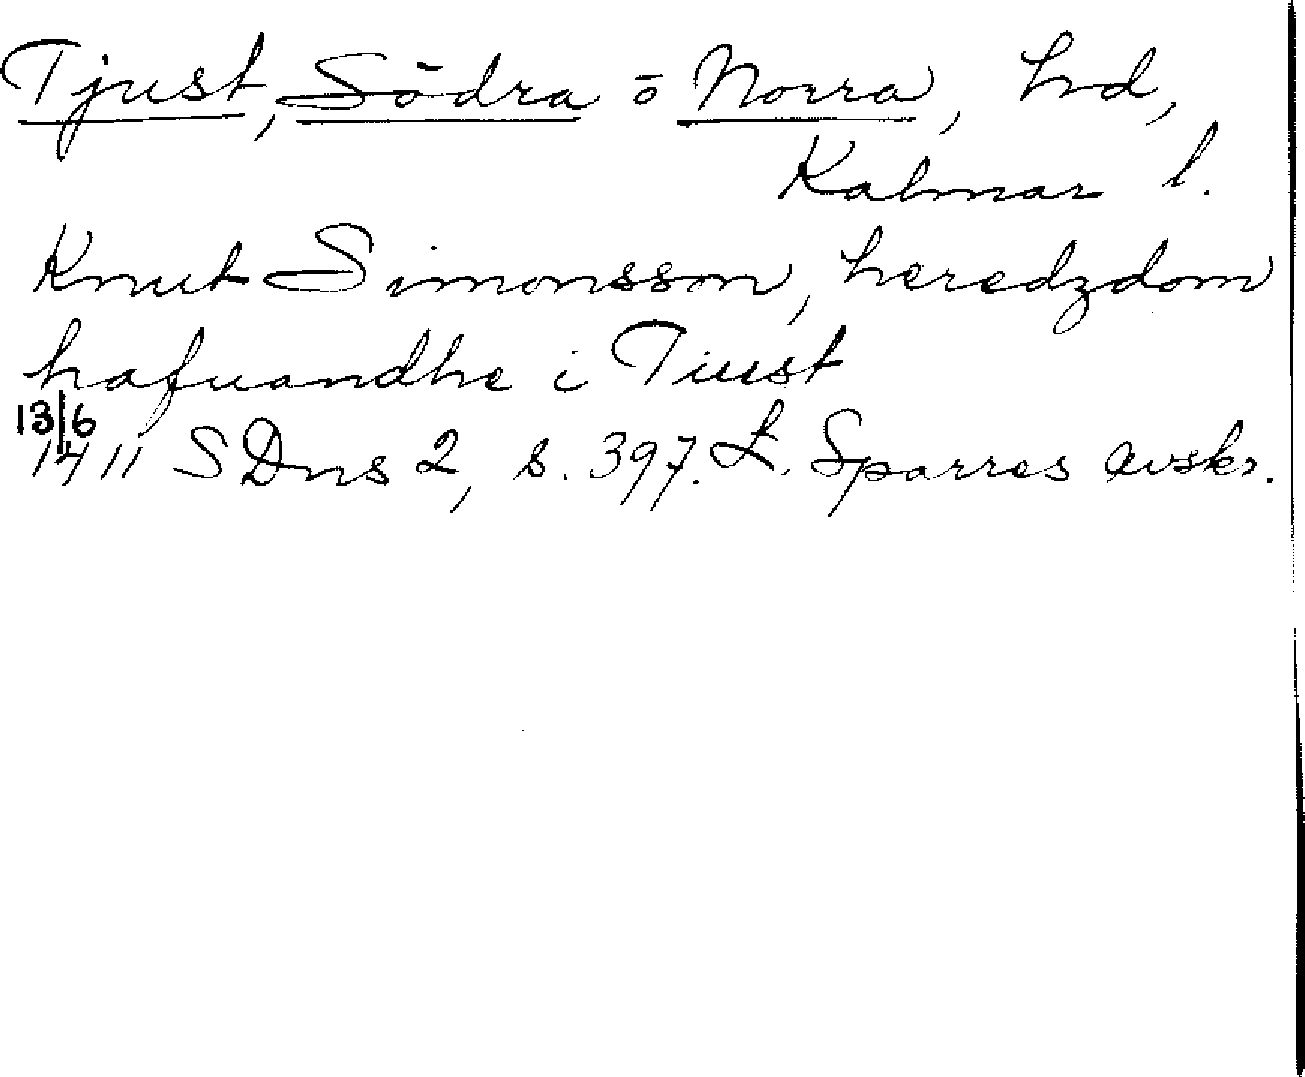 Tjust, Södra o Norra, hd,
Kalmar l.
Knut Simonsson, heredzdom
hafuandhe i Tiust
13/6
1411 SDns 2, s. 397. L. Sparres avskr.